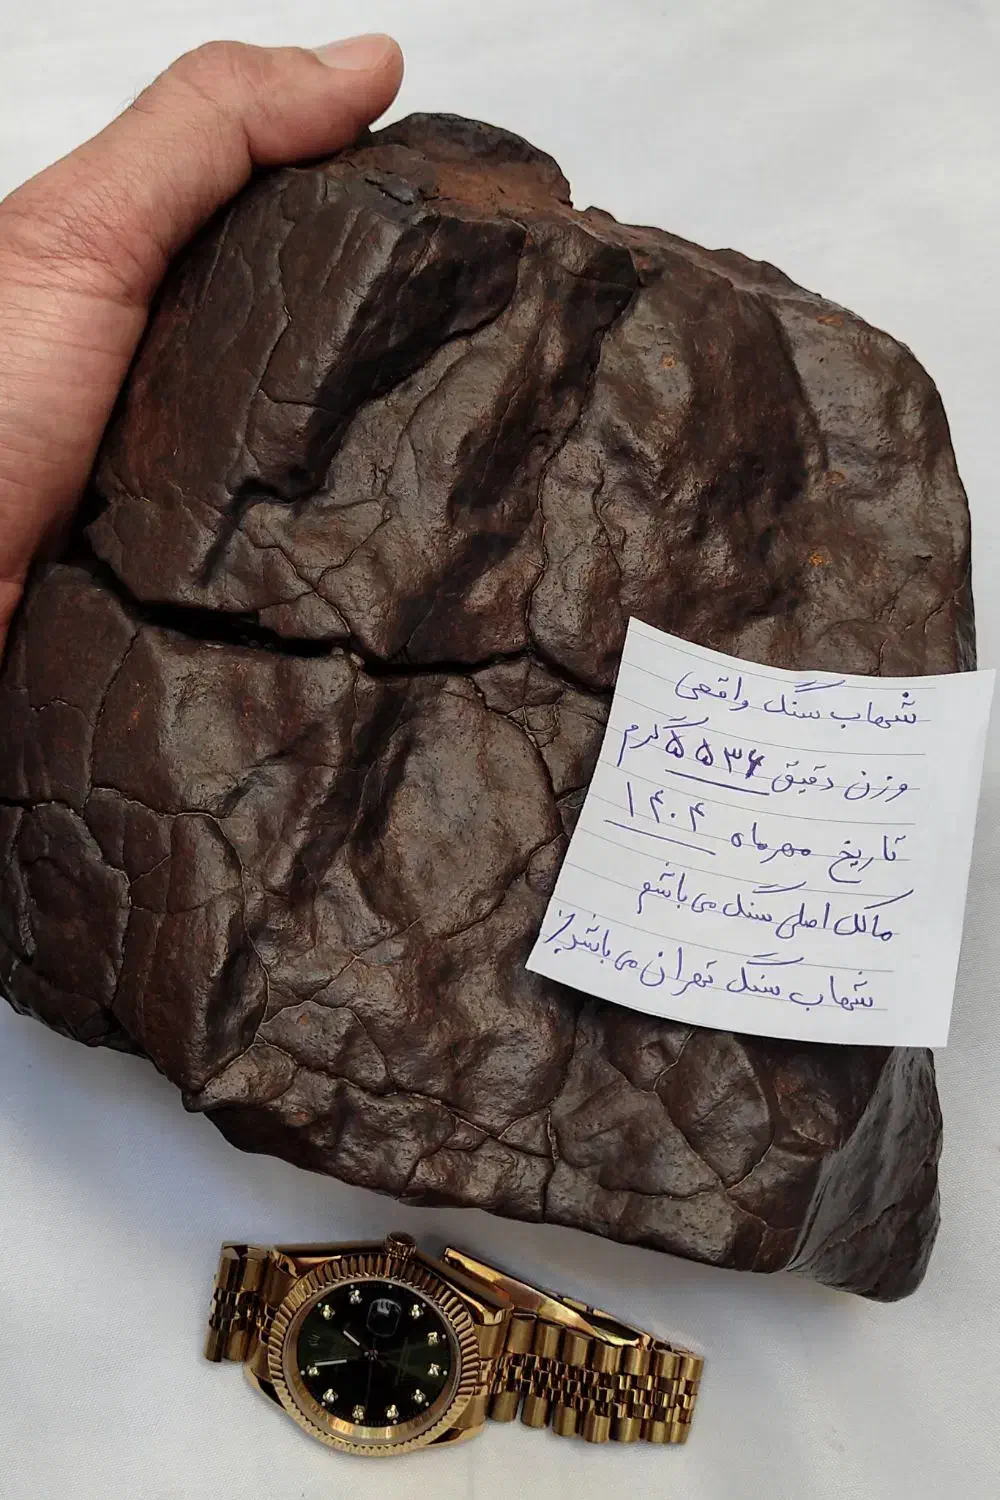 شهاب سنگ واقعی
وزن دقیق ۵۵۳۶ گرم
تاریخ مهرماه ۱۴۰۴
مالک اصلی سنگ می باشم
شهاب سنگ تهران می باشد